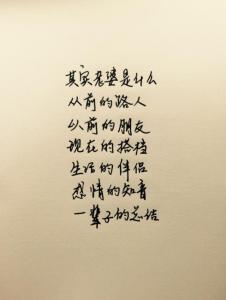 其实老婆是什么
从前的路人
以前的朋友
现在的搭档
生活的伴侣
感情的知音
一辈子的总结